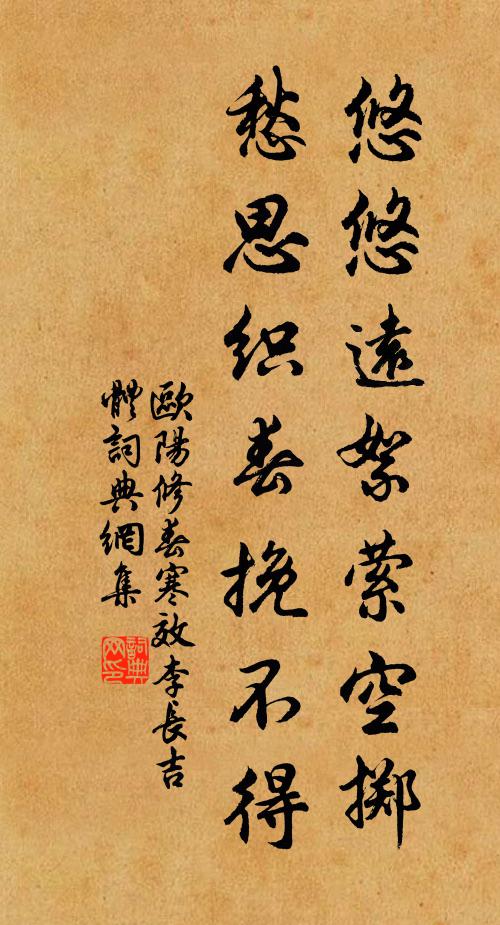 悠悠遠絮縈空擲
愁思織春挽不得
歐陽修春寒效李長吉
體詞典網集
詞典
网印